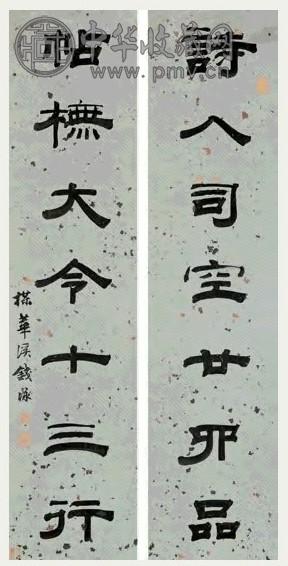 中华收藏网
www.pmv.cn
詩入司空廿四品
帖橅大令十三行
楳華溪錢泳